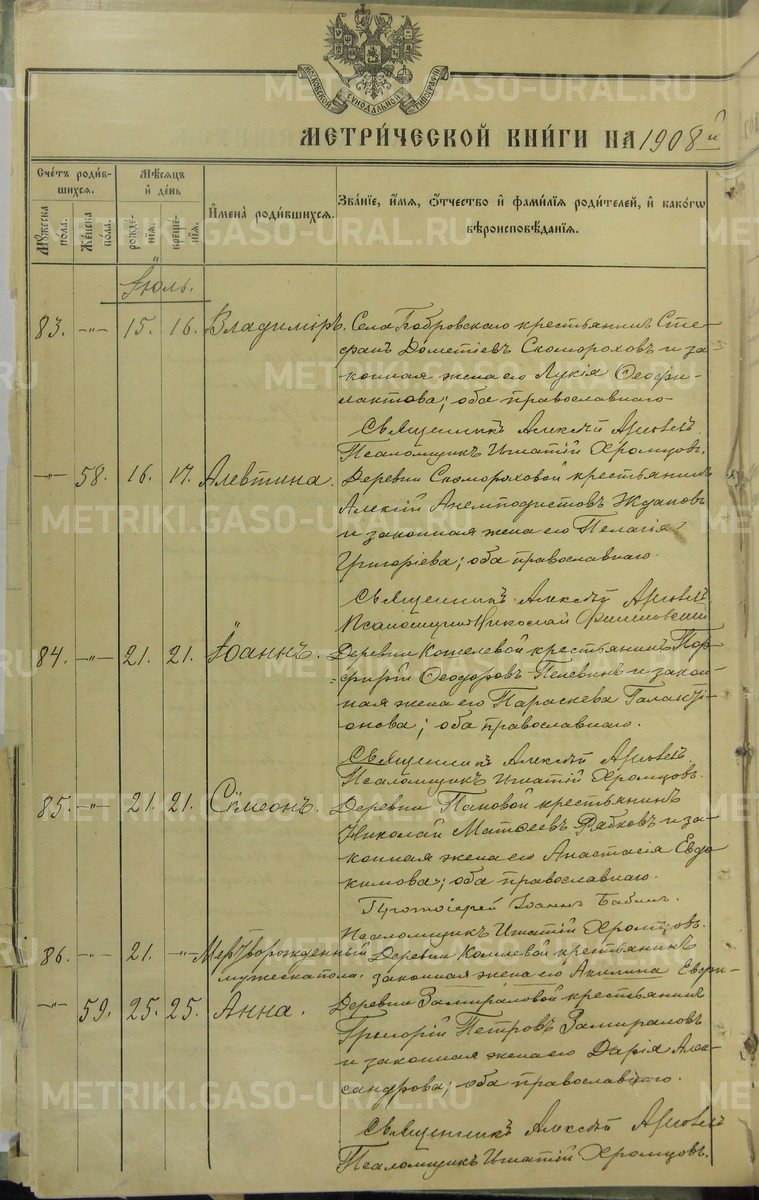 МОСКОВСКОЙ СУНОДАЛЬНОЙ ТИПОГРАФІИ
МЕТРИ́ЧЕСКОЙ КНИ́ГИ НА 1908й
Сче́тъ роди́в-
шихся.
Му́жеска
по́ла.
Же́нска
по́ла.
Мѣ́сяцъ
и҆ де́нь
рожде́-
нїя.
креще́-
нїя.
И҆мена̀ роди́вшихся.
Зва́нїе, и҆́мя, ѻ҆́тчество и҆ фами́лїя роди́телей, и҆ како́гѡ
вѣроисповѣ́данїя.
Іюль.
83. -"- 15. 16. Владиміръ. Села Бобровскаго крестьянинъ Сте-
фанъ Дометіевъ Скомороховъ и за-
конная жена его Лукія Ѳеофи-
лактова; оба православнаго
Священникъ Алексѣй
Псаломщикъ Игнатій Хромцовъ.
-"- 58. 16. 17. Алевтина. Деревни Скомороховой крестьянинъ
Алексій Анемподистовъ Ждановъ
и законная жена его Пелагія
Григоріева; оба православнаго.
Священникъ Алексѣй
Псаломщикъ Николай
84. -"- 21. 21. Іоаннъ. Деревни Кошелевой крестьянинъ Пор-
фирій Ѳеодоровъ Пелевинъ и закон-
ная жена его Параскева Галакті-
онова; оба православнаго.
Священникъ Алексѣй
Псаломщикъ Игнатій Хромцовъ.
85. -"- 21. 21. Сѵмеонъ. Деревни Пановой крестьянинъ
Николай Матѳеевъ Рябковъ и за-
конная жена его Анастасія Евдо
кимова; оба православнаго.
Протоіерей Іоаннъ Бабинъ.
Псаломщикъ Игнатій Хромцовъ.
86. -"- 21. -"- Мертворожденный Деревни крестьянинъ
мужеска пола. законная жена его Акилина
-"- 59. 25. 25. Анна. Деревни Замираловой крестьянинъ
Григорій Петровъ Замираловъ
и законная жена его Дарія Алек-
сандрова; оба православнаго.
Священникъ Алексѣй
Псаломщикъ Игнатій Хромцовъ.
METRIKI.GASO-URAL.RU